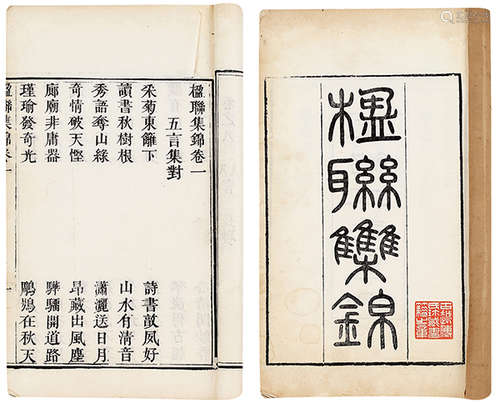 楹聯集錦
楹聯集錦卷一
五言集對
采菊東籬下 詩書敦夙好
讀書秋樹根 山水有清音
秀語奪山綠 瀟灑送日月
奇情破天慳 昂藏出風塵
廊廟非庸器 驊騮開道路
瑾瑜發奇光 鵰鶚在秋天
楹聯集錦卷一 一